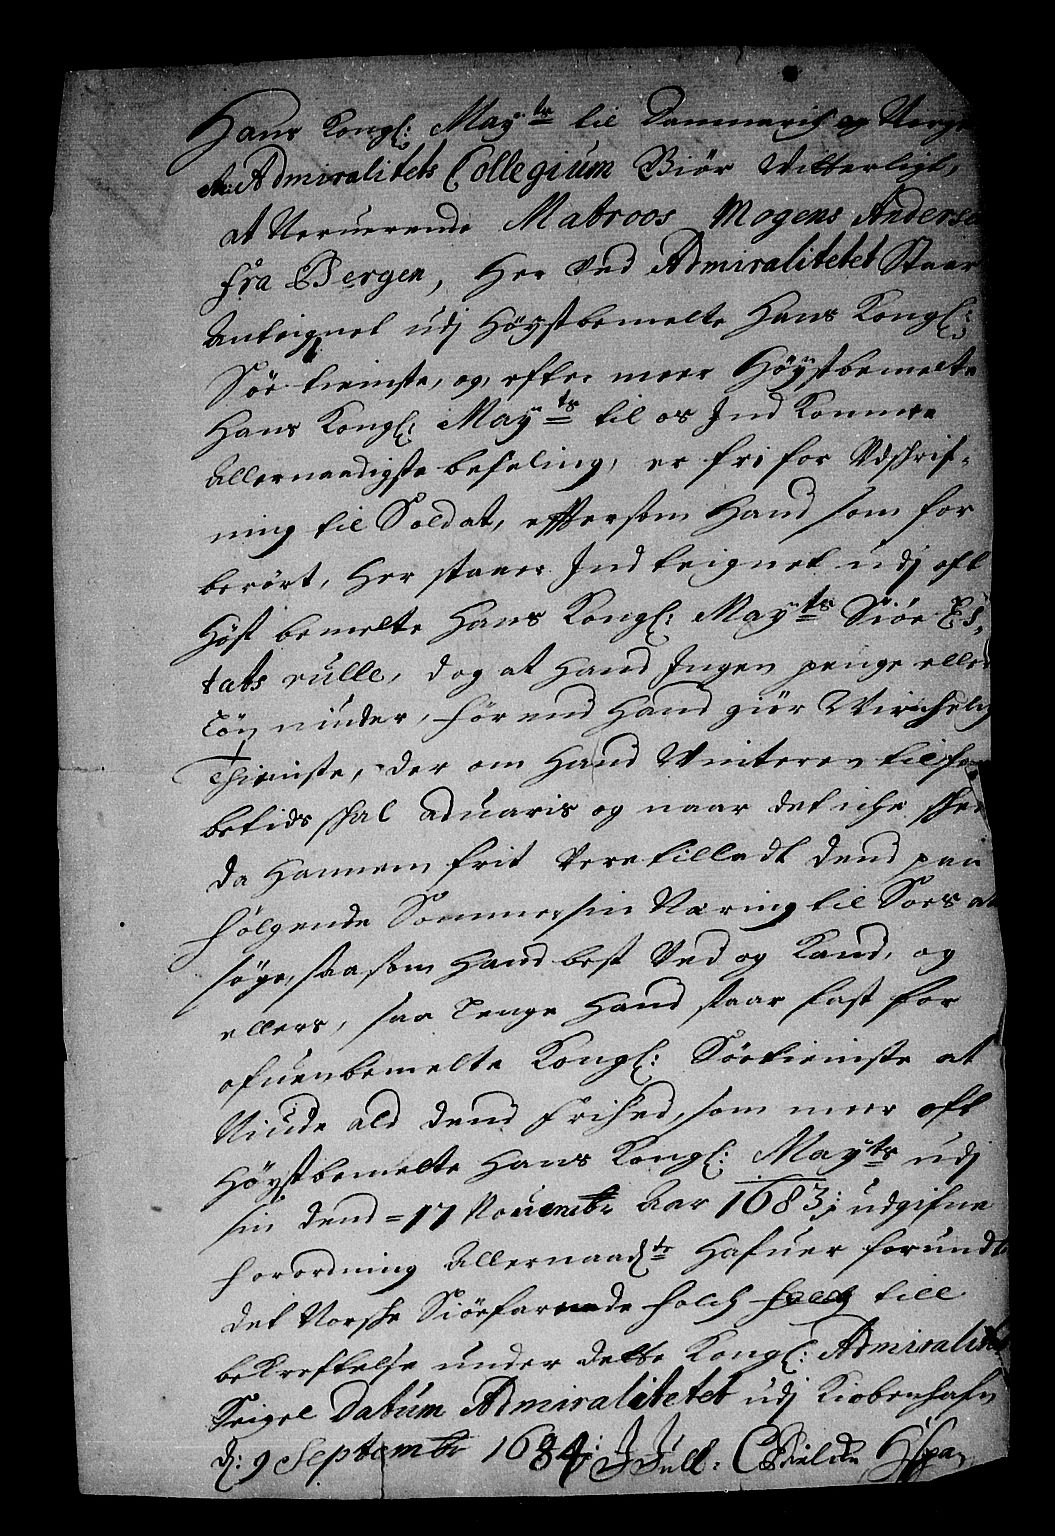 Hans Kongl: May:ts til Danmarch og Norge
et: Admiralitets Collegium Giør Vitterligt,
at Neruerende Matroos Mogens Anderse
fra Bergen, Her Ved Admiralitetet Staar
Anteignet udj Høystbemelte Hans Kongl:
Søe tieniste, og efter meer Høystbemelte
Hans Kongl: May:ts til os Ind Komne
Allernaadigste befaling, er fri for Vdschrif-
ning til Soldat, efftersom Hand som for
berørt, Her staaer Indteignet udj oft
Høst bemelte Hans Kongl: May:ts Siøe Es-
tats rulle, dog at Hand Ingen penge eller
Løn niuder, før end Hand giør Virchelig
Thieniste, der om Hand Vinteren tilfor
betids schal aduaris og naar det iche scheer
da Hannem frit Vere tilladt dend paa
følgende Sommer sin Næring til Søes at
søge, saa som Hand best Ved og Kand, og
ellers, saa Lenge Hand staar fast for
ofuenbemelte Kongl: Søetieniste at
Niude ald dend Frihed, som meer oft
Høystbemelte Hans Kongl: May:ts udj
sin dend = 17 Nouembr Aar 1683; udgifne
forordning Allernaad:st Hafuer forundt
det Norsche Siøefarende folch till
bekreftelse under dette Kongl: Admiralitets
Seigel Datum Admiralitetet udj Kiøbenhafn
d: 9 Septembr 1684: J Juell: